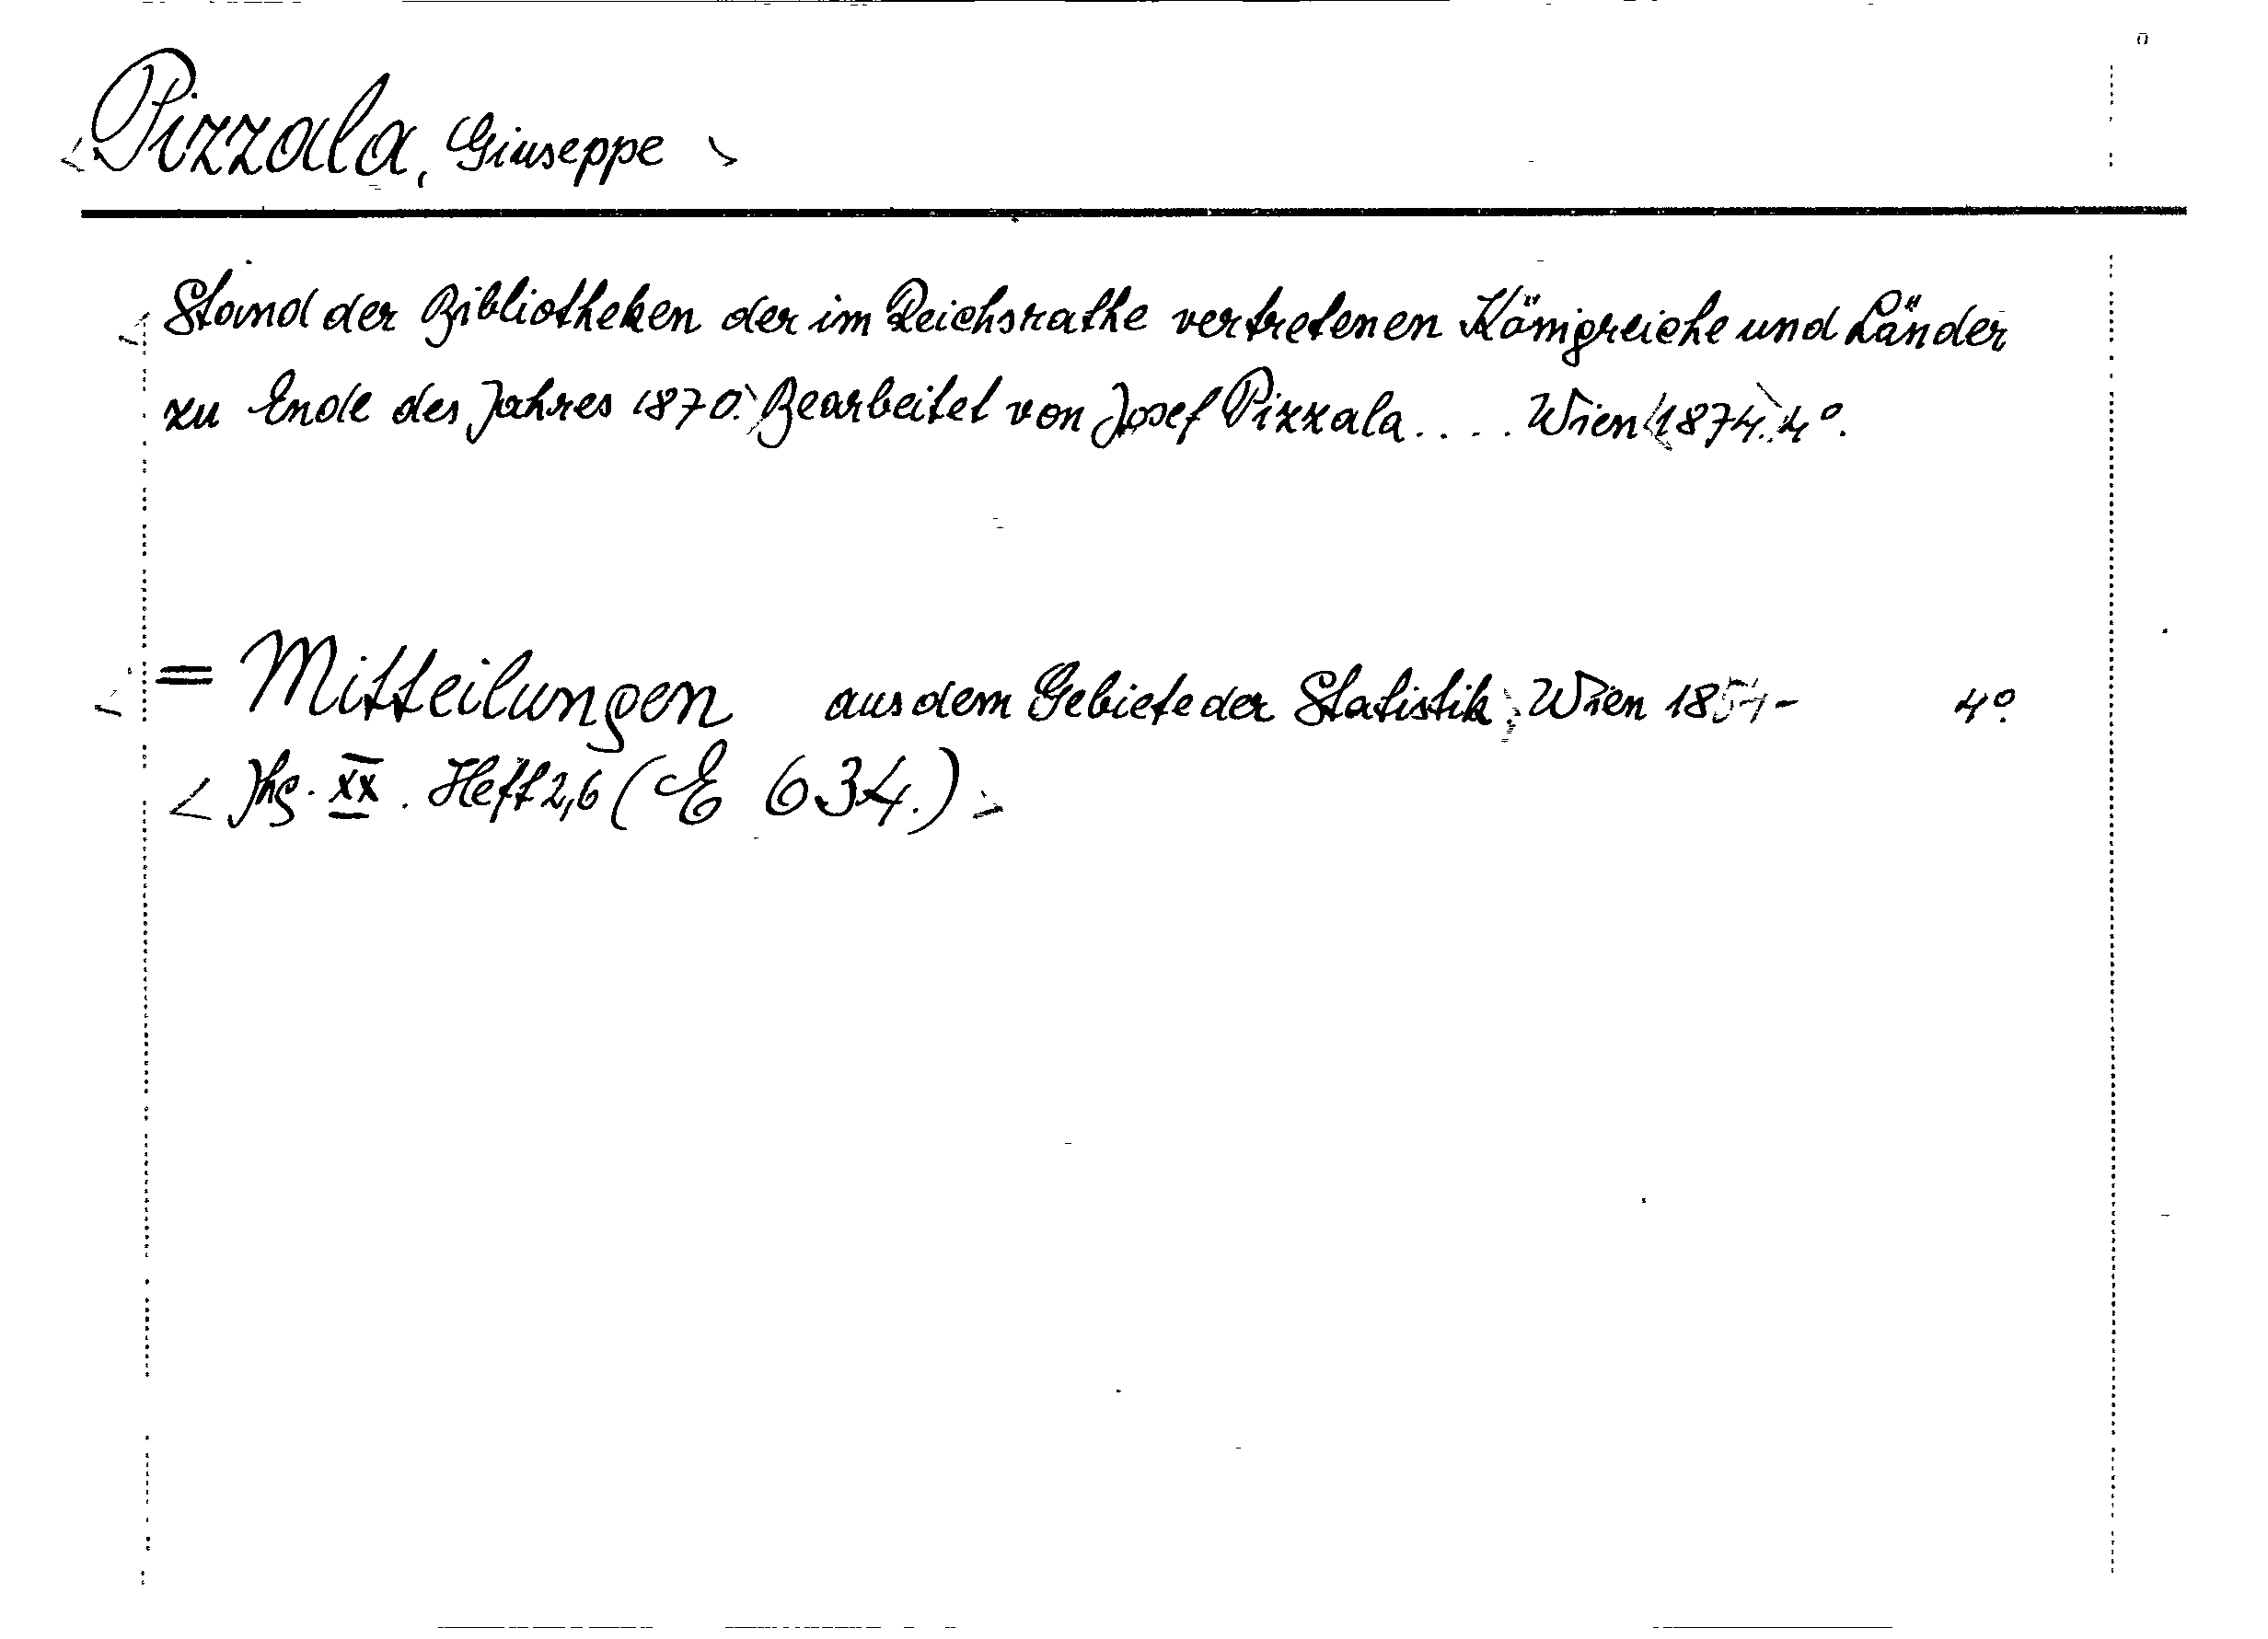 <Pizzala, Giuseppe>
<Stand der Bibliotheken der im Reichsrathe vertretenen Königreiche und Länder
zu Ende des Jahres 1870.> Bearbeitet von Josef Pizzala.... Wien <1874.> 4°.
<= Mitteilungen aus dem Gebiete der Statistik; Wien 1854- 4°.
<Jhg. XX. Heft 2,6 (E 634.)>